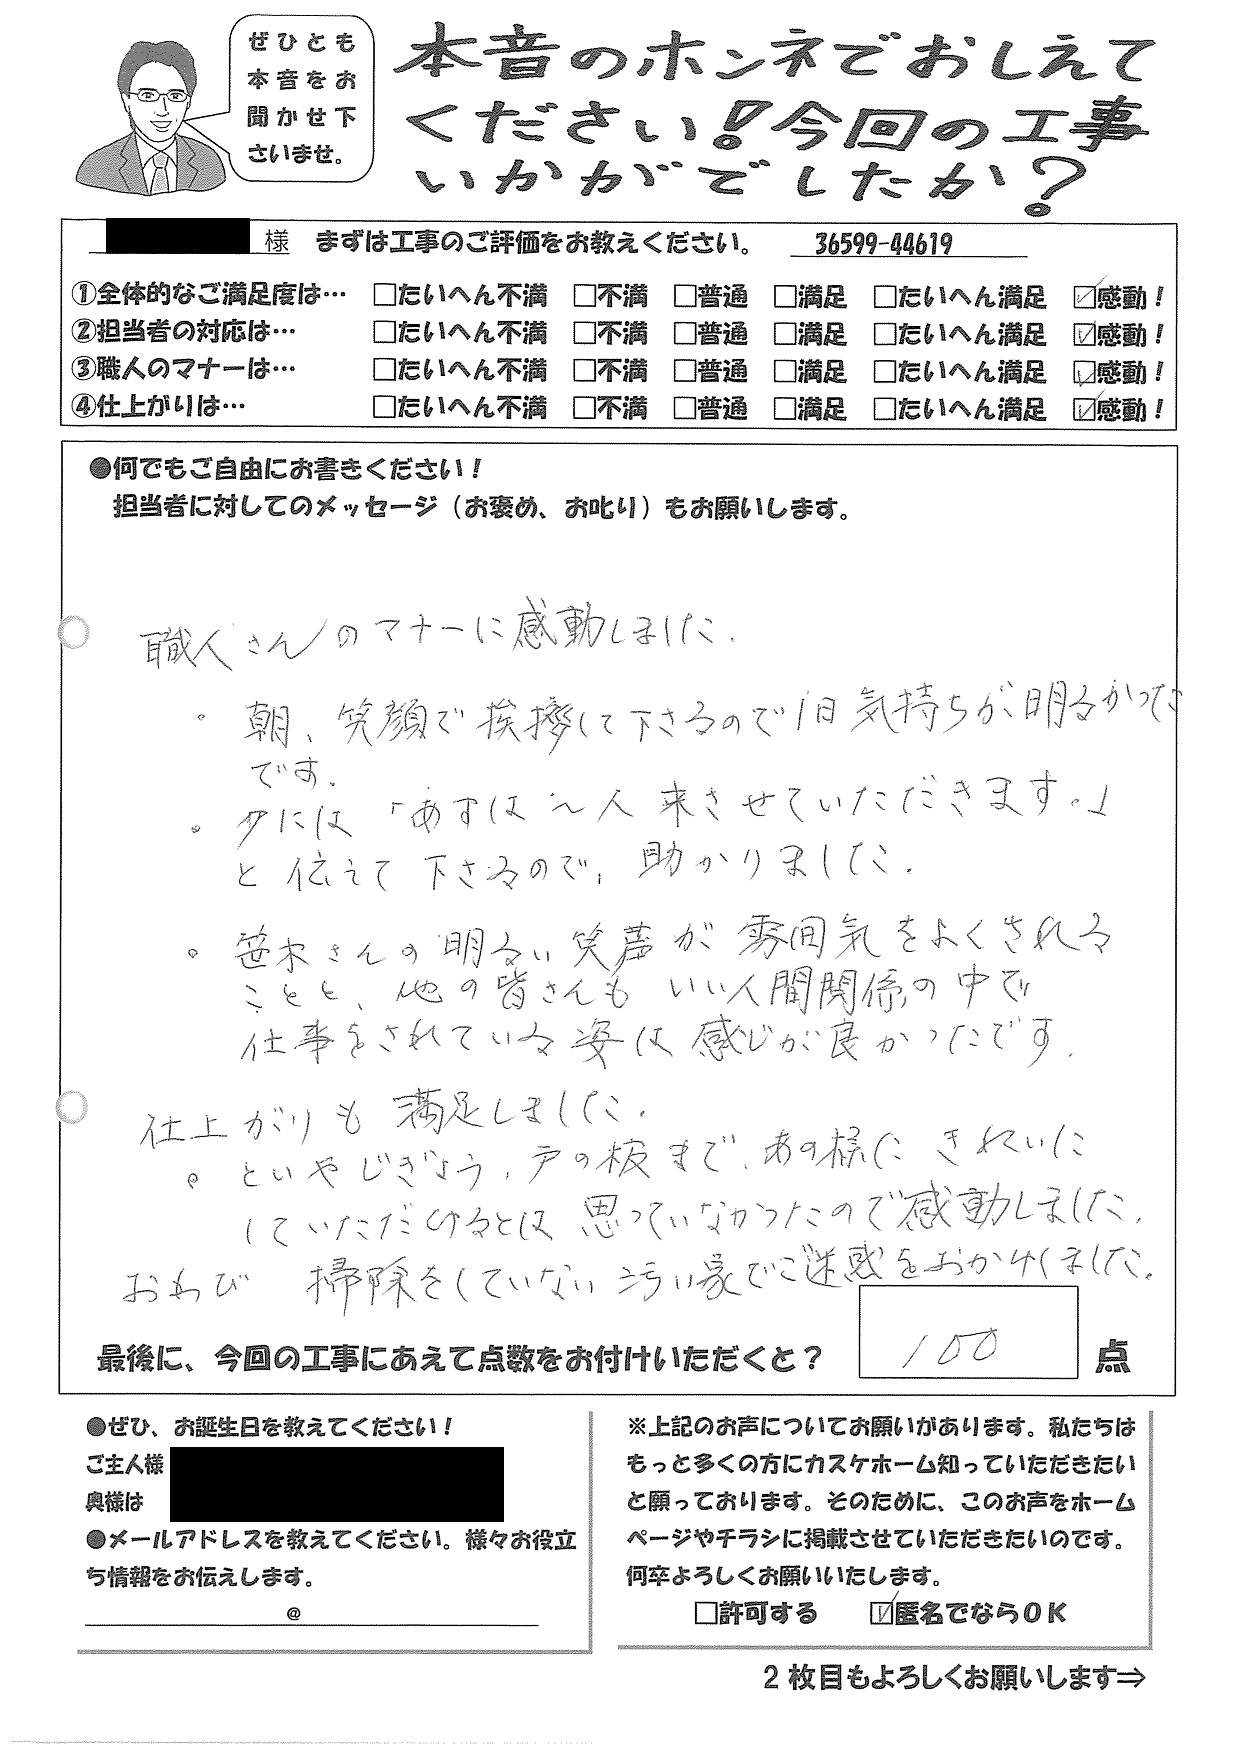 ぜひとも
本音をお
聞かせ下
さいませ。
本音のホンネでおしえて
ください!今回の工事
いかがでしたか?
様 まずは工事のご評価をお教えください。 36599-44619
①全体的なご満足度は… □たいへん不満 □不満 □普通 □満足 □たいへん満足 ☑感動!
②担当者の対応は… □たいへん不満 □不満 □普通 □満足 □たいへん満足 ☑感動!
③職人のマナーは… □たいへん不満 □不満 □普通 □満足 □たいへん満足 ☑感動!
④仕上がりは… □たいへん不満 □不満 □普通 □満足 □たいへん満足 ☑感動!
●何でもご自由にお書きください!
担当者に対してのメッセージ(お褒め、お叱り)もお願いします。
職人さんのマナーに感動しました.
・朝、笑顔で挨拶して下さるので1日気持ちが明るかった
です.
・夕には「あすは〜人来させていただきます。」
と伝えて下さるので、助かりました.
・笹木さんの明るい笑声が雰囲気をよくされる
ことと、他の皆さんもいい人間関係の中で
仕事をされている姿は感じが良かったです.
仕上がりも満足しました.
・といやじぎょう、戸の板まで、あの様にきれいに
していただけるとは思っていなかったので感動しました.
おわび 掃除をしていない汚い家でご迷惑をおかけしました.
最後に、今回の工事にあえて点数をお付けいただくと? 100 点
●ぜひ、お誕生日を教えてください!
ご主人様
奥様は
●メールアドレスを教えてください。様々お役立
ち情報をお伝えします。
@
※上記のお声についてお願いがあります。私たちは
もっと多くの方にカスケホーム知っていただきたい
と願っております。そのために、このお声をホーム
ページやチラシに掲載させていただきたいのです。
何卒よろしくお願いいたします。
□許可する ☑匿名でならOK
2枚目もよろしくお願いします⇒